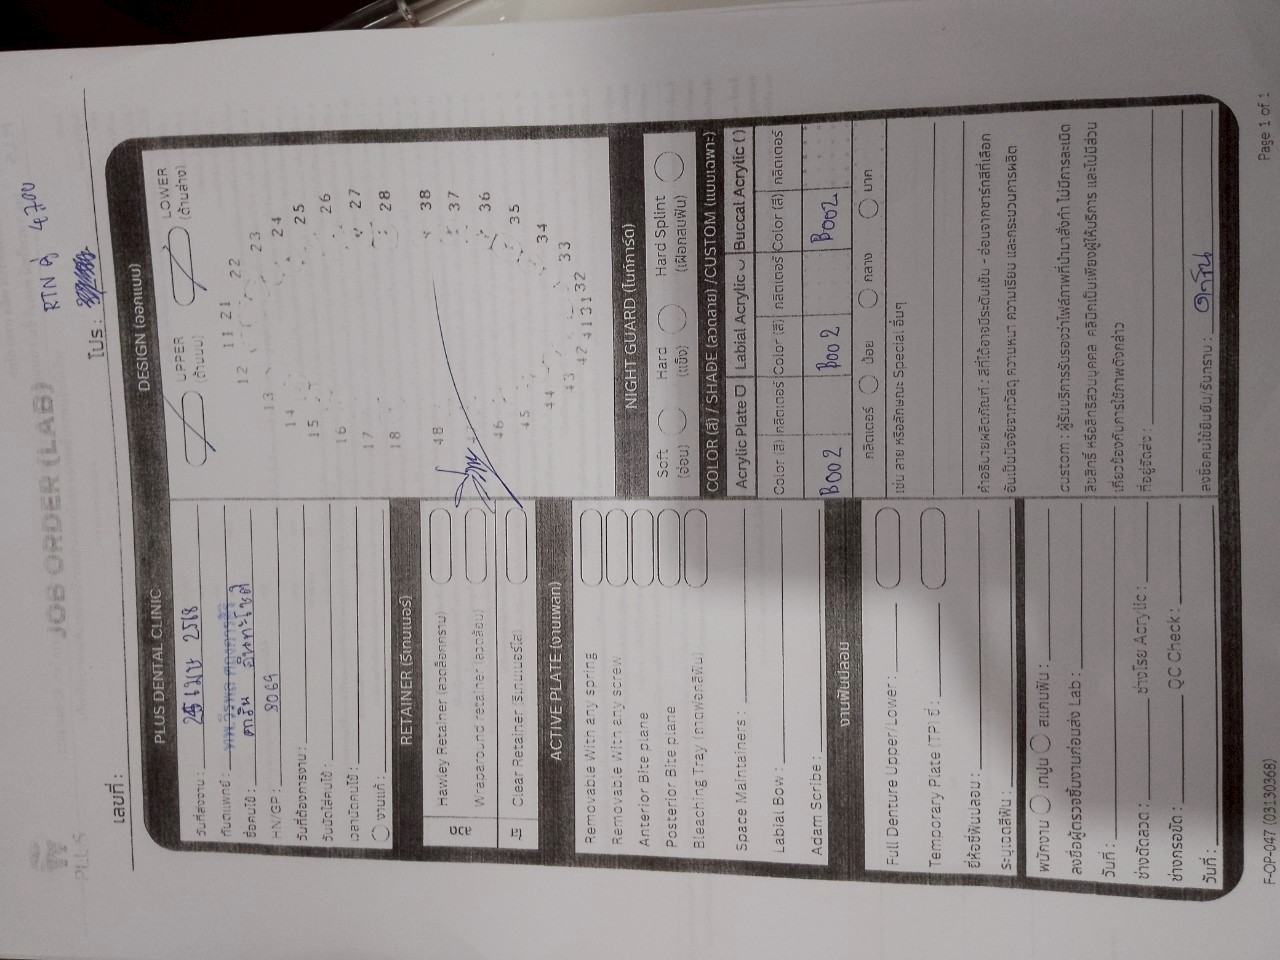 RTN คู่ 4700
PLUS
JOB ORDER (LAB)
เลขที่ :
โปร :
PLUS DENTAL CLINIC
วันที่ส่งงาน :
ทันตแพทย์ :
ชื่อคนไข้ :
HN/GP : 8069
วันที่ต้องการงาน :
วันนัดใส่คนไข้ :
เวลานัดคนไข้ :
งานแก้ :
RETAINER (รีเทนเนอร์)
ลวด
Hawley Retainer (ลวดล็อกกราม)
Wraparound retainer (ลวดล้อม)
ใส
Clear Retainer (รีเทนเนอร์ใส)
ACTIVE PLATE (งานเพลท)
Removable With any spring
Removable With any screw
Anterior Bite plane
Posterior Bite plane
Bleaching Tray (ถาดฟอกสีฟัน)
Space Maintainers :
Labial Bow :
Adam Scribe :
งานฟันปลอม
Full Denture Upper/Lower :
Temporary Plate (TP) ซี่ :
ยี่ห้อซี่ฟันปลอม :
ระบุเฉดสีฟัน :
พนักงาน เทปูน สแกนฟัน :
ลงชื่อผู้ตรวจชิ้นงานก่อนส่ง Lab :
วันที่ :
ช่างดัดลวด : ช่างโรย Acrylic :
ช่างกรอขัด : QC Check :
วันที่ :
DESIGN (ออกแบบ)
UPPER LOWER
(ด้านบน) (ด้านล่าง)
11 21
12 22
13 23
14 24
15 25
16 26
17 27
18 28
48 38
37
46 36
45 35
44 34
43 33
42 41 31 32
NIGHT GUARD (ไนท์การ์ด)
Soft Hard Hard Splint
(อ่อน) (แข็ง) (เฝือกสบฟัน)
COLOR (สี) / SHADE (ลวดลาย) /CUSTOM (แบบเฉพาะ)
Acrylic Plate Labial Acrylic Buccal Acrylic ( )
Color (สี) กลิตเตอร์ Color (สี) กลิตเตอร์ Color (สี) กลิตเตอร์
B002 B002 B002
กลิตเตอร์ น้อย กลาง มาก
เช่น ลาย หรือลักษณะ Special อื่นๆ
คำอธิบายผลิตภัณฑ์ : สีที่ได้อาจมีระดับเข้ม - อ่อนจากชาร์ทสีที่เลือก
อันเป็นปัจจัยจากวัสดุ ความหนา ความเรียบ และกระบวนการผลิต
custom : ผู้รับบริการรับรองว่าไฟล์ภาพที่นำมาสั่งทำ ไม่มีการละเมิด
ลิขสิทธิ์ หรือสิทธิส่วนบุคคล คลินิกเป็นเพียงผู้ให้บริการ และไม่มีส่วน
เกี่ยวข้องกับการใช้ภาพดังกล่าว
ที่อยู่จัดส่ง :
ลงชื่อคนไข้ยืนยัน/รับทราบ :
F-OP-047 (03130368)
Page 1 of 1